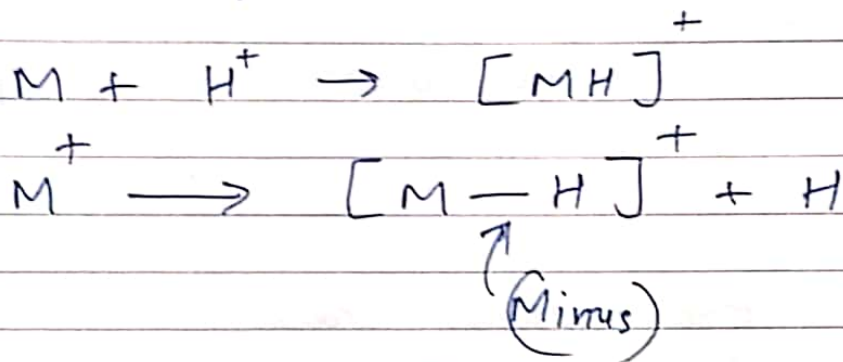 M + H⁺ → [MH]⁺
M⁺ → [M — H]⁺ + H
(Minus)